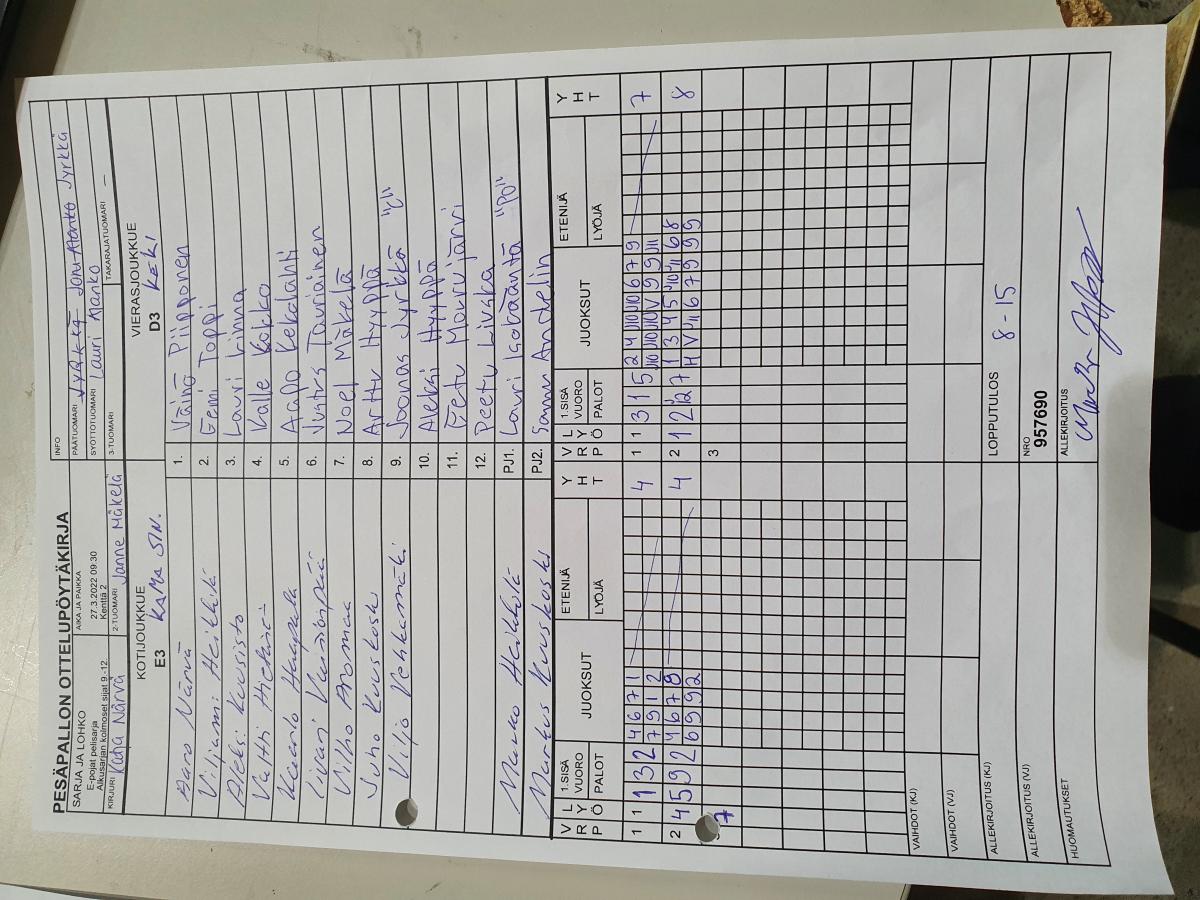 PESÄPALLON OTTELUPÖYTÄKIRJA
SARJA JA LOHKO
E-pojat pelisarja
Alkusarjan kolmoset sijat 9.-12.
AIKA JA PAIKKA
27.3.2022 09:30
Kenttä 2
INFO
PÄÄTUOMARI Jyrkkä Manko Jyrkkä
SYÖTTÖTUOMARI Lauri Manko
KIRJURI Katja Närvä
2-TUOMARI Janne Mäkelä
3-TUOMARI
TAKARAJATUOMARI —
KOTIJOUKKUE
E3 KaMa SIN.
VIERASJOUKKUE
D3 KeKi
Aaro Närvä 1. Väinö Piipponen
Viljami Heikkilä 2. Eemi Toppi
Aleksi Kuusisto 3. Lauri Linna
Vatti Hietaniemi 4. Kalle Kokko
Kaarlo Haapala 5. Aapo Kekalahti
Iivari Kuusinpää 6. Justus Tauriainen
Vilho Aromaa 7. Noel Mäkelä
Juho Kuuskoski 8. Arttu Hyyppä
Viljo Vehkamäki 9. Joonas Jyrkkä "C"
10. Aleksi Hyyppä
11. Eetu Mourujärvi
12. Peetu Livska
Marko Heikkilä PJ1. Lauri Isoääntä "PO"
Markus Kuuskoski PJ2. Samu Andelin
V R P L Y Ö 1.SISÄ VUORO PALOT JUOKSUT ETENIJÄ LYÖJÄ Y H T V R P L Y Ö 1.SISÄ VUORO PALOT JUOKSUT ETENIJÄ LYÖJÄ Y H T
1 1 1 3 2 4 6 7 1 4 1 1 3 1 5 2 4 J10 J10 6 7 9 7
7 9 1 2 J10 J10 J10 V 9 9 J11
2 4 5 9 2 4 6 7 8 4 2 1 2 2 7 1 3 4 5 J10 J11 6 8 8
6 9 9 2 H V J11 6 7 9 9 9
7 3
VAIHDOT (KJ)
VAIHDOT (VJ)
ALLEKIRJOITUS (KJ)
LOPPUTULOS 8 - 15
ALLEKIRJOITUS (VJ)
NRO
957690
HUOMAUTUKSET
ALLEKIRJOITUS